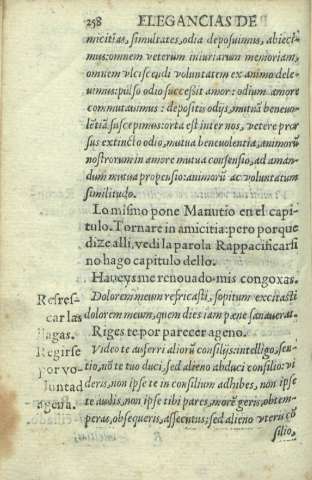 258 ELEGANCIAS DE
micitias, simultates, odia deposuimus, abieci-
mus: omnem veterum iniuriarum memoriam,
omnem vlciscendi voluntatem ex animo dele-
uimus: pulso odio successit amor: odium amore
commutauimus: depositis odijs, mutuã beneuo-
lẽtiã suscepimus: orta est inter nos, vetere pror
sus extincto odio, mutua beneuolentia, animorũ
nostrorum in amore mutua consensio, ad aman-
dum mutua propensio: animorũ ac voluntatum
similitudo.
Lo mismo pone Manutio en el capi-
tulo. Tornare in amicitia: pero porque
dize alli, vedi la parola Rappacificarsi
no hago capitulo dello.
Haueysme renouado mis congoxas.
Refres-
car las
llagas.
Dolorem meum refricasti, sopitum excitasti
dolorem meum, quem dies iam pæne sanauerat.
Riges te por parecer ageno.
Regirse
por vo-
luntad
agena.
Video te auferri aliorũ consilijs: intelligo, sen-
tio, nõ te tuo duci, sed alieno abduci consilio: vi
deris, non ipse te in consilium adhibes, non ipse
te audis, non ipse tibi pares, morẽ geris, obtem-
peras, obsequeris, assentus; sed alieno vteris cõ
silio,